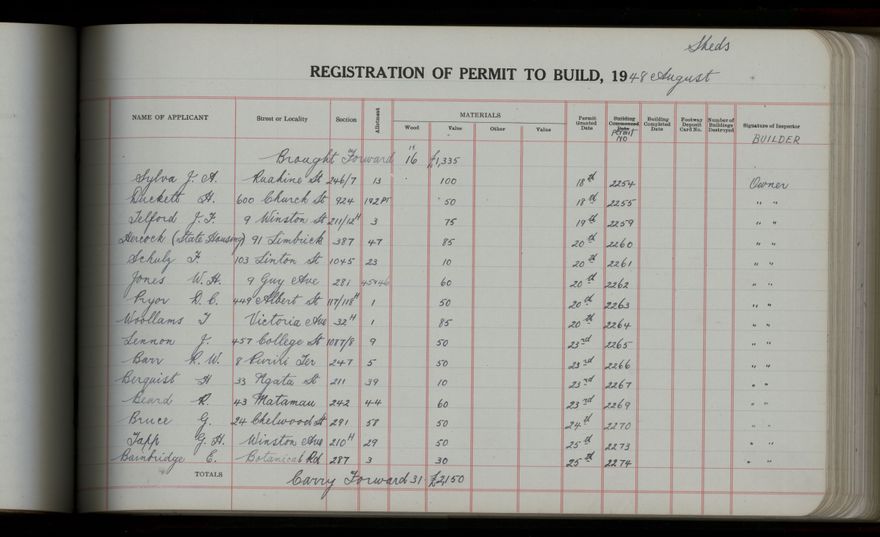 Sheds
REGISTRATION OF PERMIT TO BUILD, 1948 August
NAME OF APPLICANT Street or Locality Section Allotment MATERIALS Wood Value Other Value Permit Granted Date Building Commenced Date Permit No Building Completed Date Footway Deposit Card No. Number of Buildings Destroyed Signature of Inspector BUILDER
Brought Forward 16 £1,335
Sylva J. A. Ruahine St 246/7 13 100 18th 2254 Owner
Duckett H. 600 Church St 924 192 PT 50 18th 2255 " "
Telford J. F. 9 Winston St 211/12H 3 75 19th 2259 " "
(State Housing) 91 Limbrick 387 47 85 20th 2260 " "
Schulz F 103 Linton St 1045 23 10 20th 2261 " "
Jones W. H. 9 Guy Ave 281 45+46 60 20th 2262 " "
Pryor R. C. 449 Albert St 117/118H 1 50 20th 2263 " "
Woollams T Victoria Ave 32H 1 85 20th 2264 " "
Lennon J. 457 College St 1087/8 9 50 23rd 2265 " "
Barr R. W. 8 Puriri Ter 247 5 50 23rd 2266 " "
Berquist H 33 Ngata St 211 39 10 23rd 2267 " "
Beard R. 43 Matamau 242 44 60 23rd 2269 " "
Bruce G. 24 Chelwood St 291 58 50 24th 2270 " "
Tapp G. H. Winston Ave 210H 29 50 25th 2273 " "
Bainbridge E. Botanical Rd 287 3 30 25th 2274 " "
TOTALS Carry Forward 31 £2150